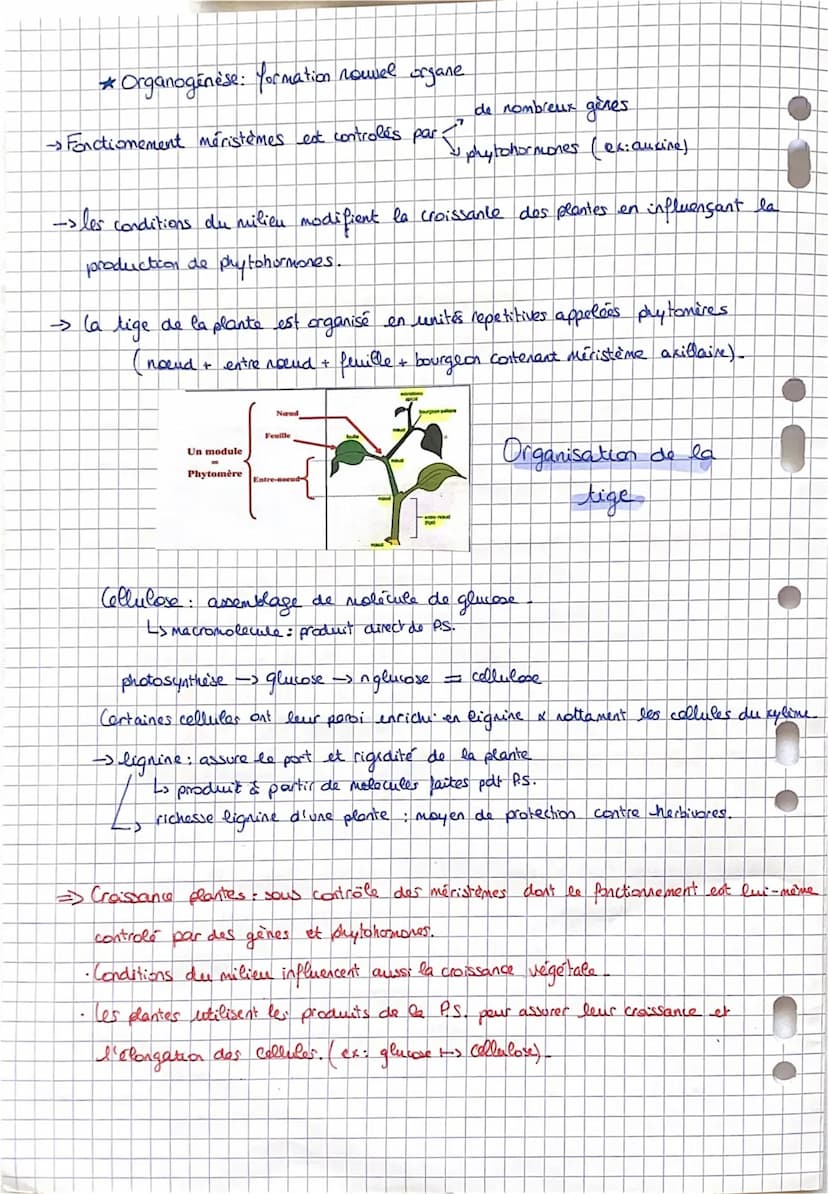 * Organogénèse: formation nouvel organe
de nombreux gènes
→ Fonctionement méristèmes est controlés par
phytohormones (ex: auxine)
→ les conditions du milieu modifient la croissance des plantes en influençant la
production de phytohormones.
→ la tige de la plante est organisé en unités repetitives appelées phytomères
(nœud + entre nœud + feuille + bourgeon contenant méristème axillaire).
Nœud
Feuille
Un module
=
Phytomère
Entre-nœud
bourgeon axillaire
nœud
feuille
nœud
nœud
entre-nœud
(tige)
nœud
Organisation de la
tige
Cellulose : assemblage de molécule de glucose.
↳ macromolécule : produit direct de PS.
photosynthèse → glucose → n glucose = cellulose
Certaines cellules ont leur paroi enrichi en lignine & nottament les cellules du xylème
→ lignine : assure le port et rigidité de la plante
↳ produit à partir de molécules faites pdt PS.
↳ richesse lignine d'une plante : moyen de protection contre herbivores.
⇒ Croissance plantes : sous contrôle des méristèmes dont le fonctionnement est lui-même
controlé par des gènes et phytohormones.
· Conditions du milieu influencent aussi la croissance végétale.
· Les plantes utilisent les produits de la PS. pour assurer leur croissance et
l'élongation des cellules. (ex: glucose ↦ cellulose).